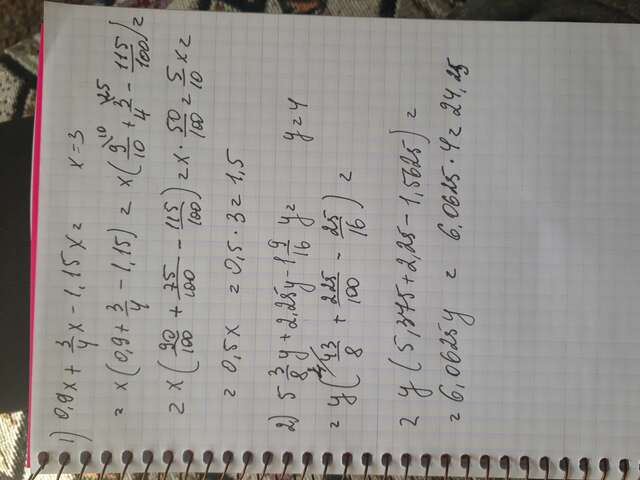 1) 0,9x + 3/4 x - 1,15x = x = 3
= x(0,9 + 3/4 - 1,15) = x(9/10 \10 + 3/4 \25 - 115/100) =
= x(90/100 + 75/100 - 115/100) = x · 50/100 = 5/10 x =
= 0,5x = 0,5 · 3 = 1,5
2) 5 3/8 y + 2,25y - 1 9/16 y = y = 4
= y(43/8 + 225/100 - 25/16) =
= y(5,375 + 2,25 - 1,5625) =
= 6,0625y = 6,0625 · 4 = 24,25